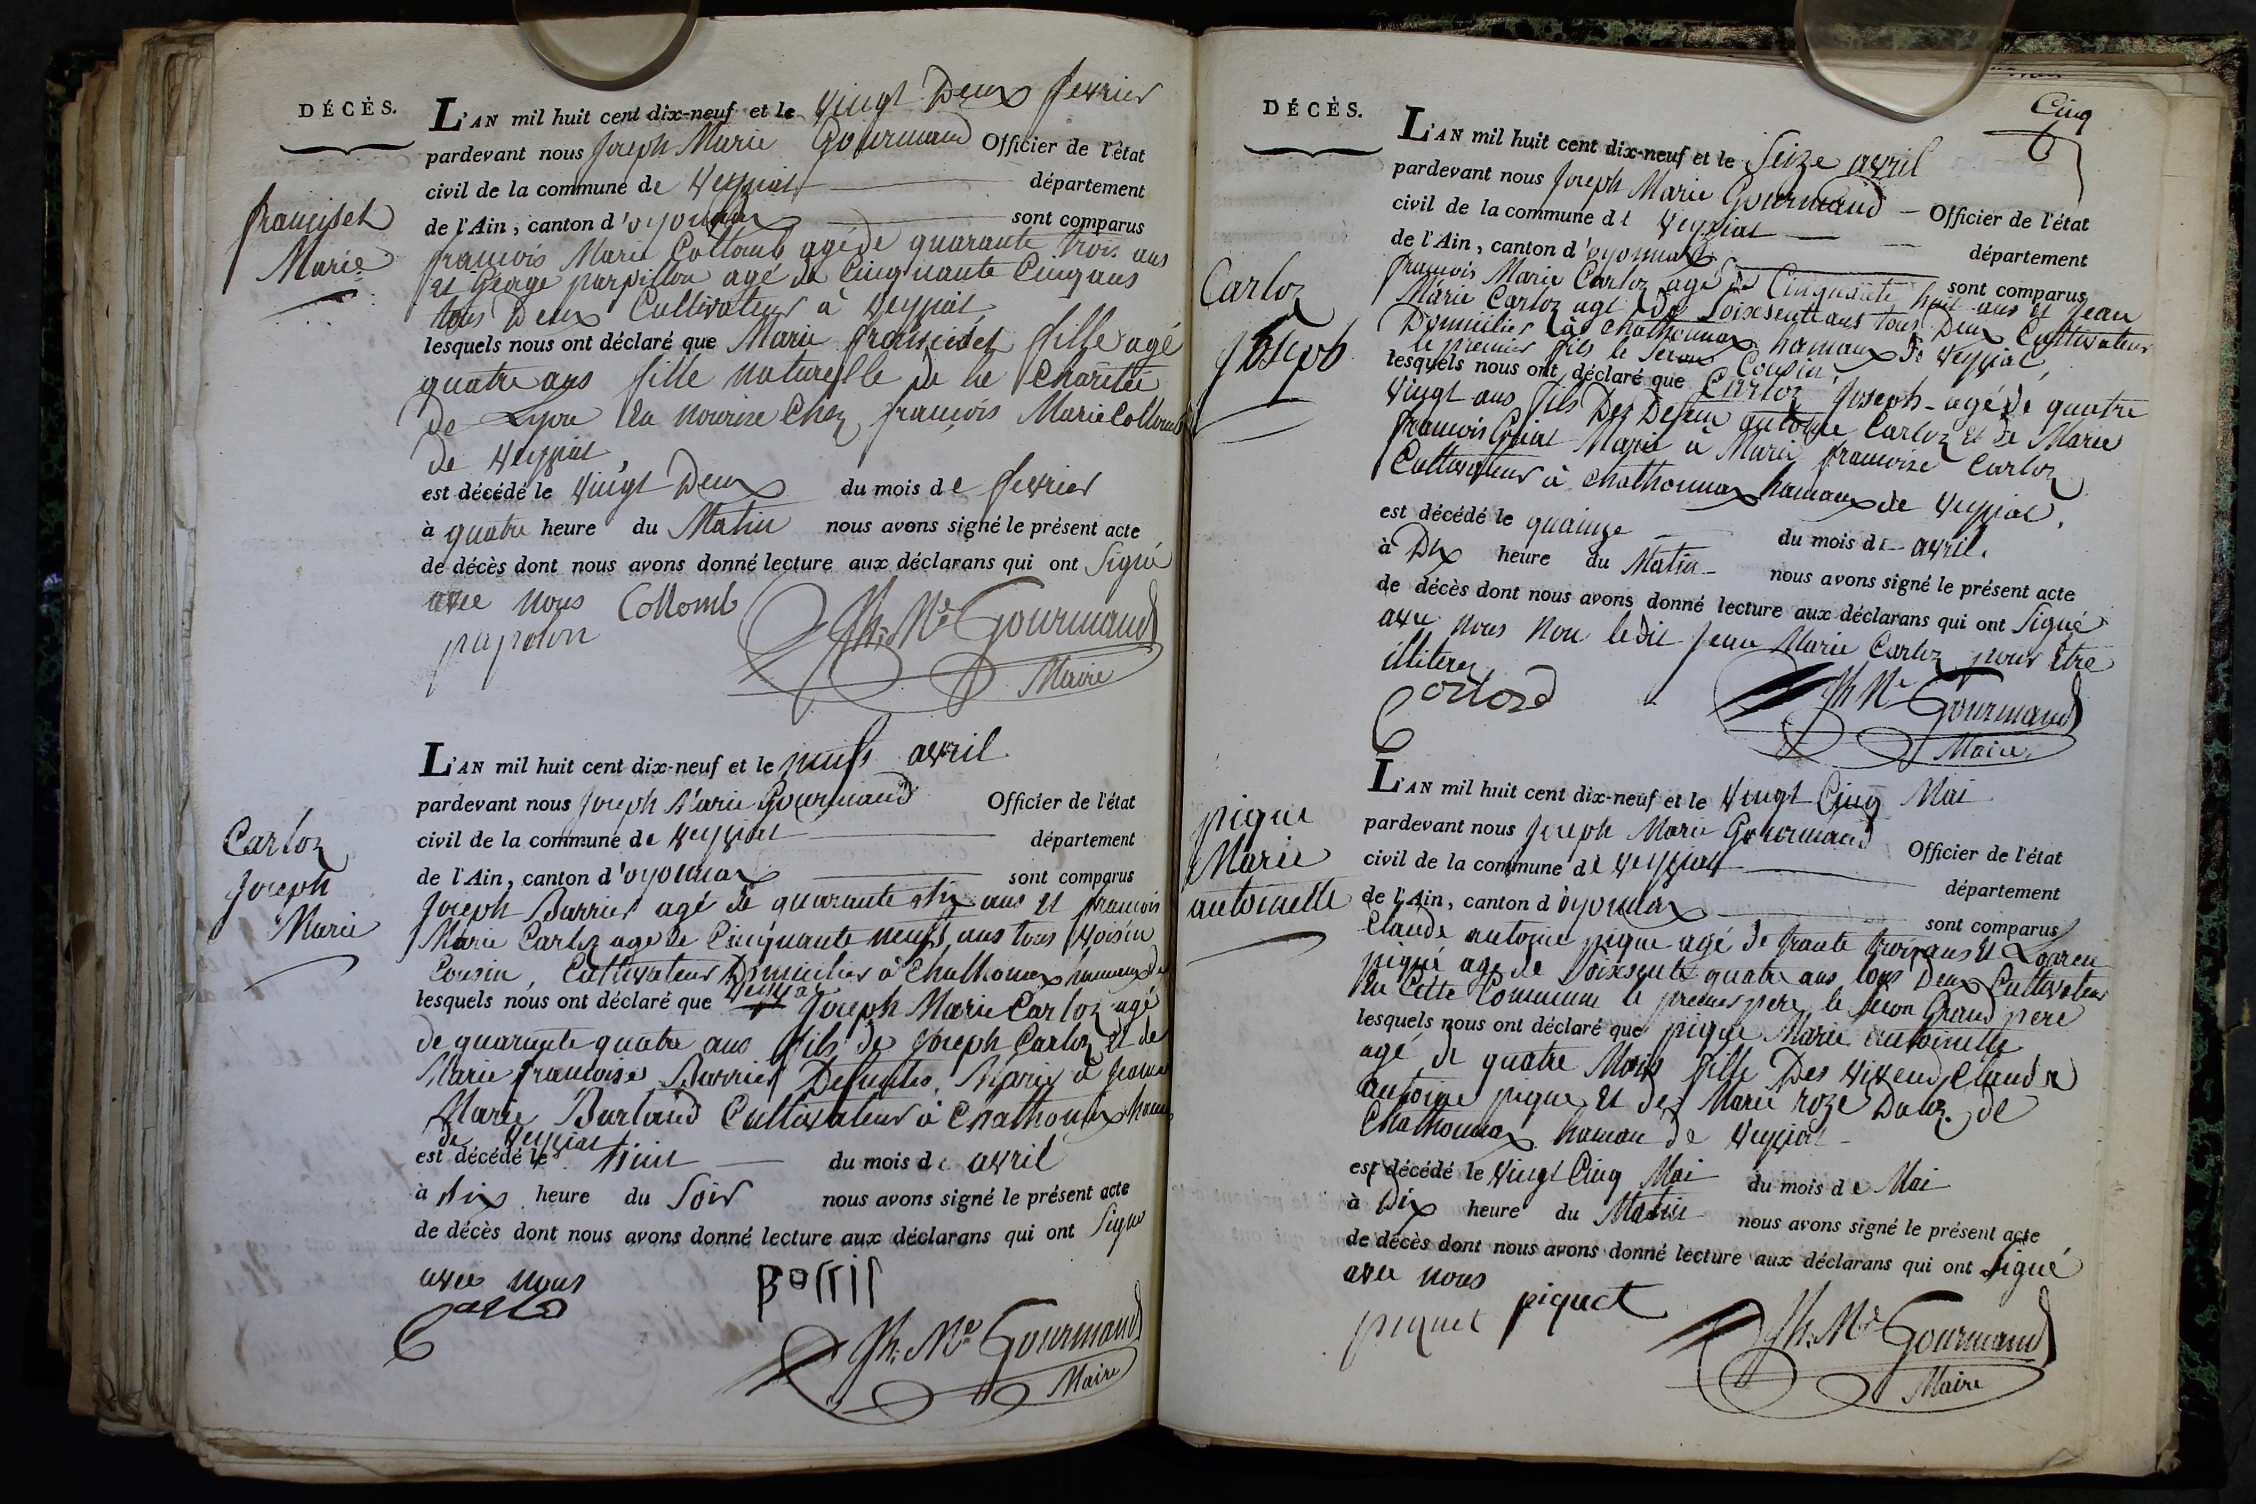 DÉCÈS.
L'AN mil huit cent dix-neuf et le vingt Deux fevrier
pardevant nous Joseph Marie Gourmand Officier de l'état
civil de la commune de veyziat département
de l'Ain, canton d'oyonnax sont comparus
françois Marie Collomb agé de quarante trois ans
et George parpillon agé de Cinquante Cinq ans
tous Deux Cultivateur à veyziat
lesquels nous ont déclaré que Marie franciset fille agé
quatre ans fille naturelle de la Charité
de Lyon en nourise Chez françois Marie Collomb
de veyziat,
est décédé le vingt Deux du mois de fevrier
à quatre heure du Matin nous avons signé le présent acte
de décès dont nous avons donné lecture aux déclarans qui ont Signé
avec nous Collomb
papolon
Jh. Me Gourmand
Maire
franciset
Marie
L'AN mil huit cent dix-neuf et le neuf avril
pardevant nous Joseph Marie Gourmand Officier de l'état
civil de la commune de veyziat département
de l'Ain, canton d'oyonnax sont comparus
Joseph Barrier agé de quarante six ans et francois
Marie Carloz age de Cinquante neuf ans tous voisin
Cousin, Cultivateur Domicilier à Chathonax hameaux de
lesquels nous ont déclaré que veyziat Joseph Marie Carloz agé
de quarante quatre ans fils de Joseph Carloz et de
Marie francoise Barrier Defuntes, Marie à Jeanne
Marie Burtand Cultivateur à Chathonax ham
de veyziat
est décédé le du mois de avril
à six heure du Soir nous avons signé le présent acte
de décès dont nous avons donné lecture aux déclarans qui ont Signe
avec nous
Jh. Me Gourmand
Maire
Carloz
Joseph
Marie
Cinq
DÉCÈS.
L'AN mil huit cent dix-neuf et le Seize avril
pardevant nous Joseph Marie Gourmand Officier de l'état
civil de la commune de veyziat département
de l'Ain, canton d'oyonnax sont comparus
francois Marie Carloz agé de Cinquante huit ans et Jean
Marie Carloz agé de Soixsente ans tous Deux Cultivateur
Domicilier à Chathonnax hamaux de veyziat,
le premier fils le Secon Cousin,
lesquels nous ont déclaré que Carloz Joseph agé de quatre
vingt ans fils Dez Defeun antoine Carloz et de Marie
francois Marié à Marie francoise Carloz
Cultivateur à Chathonnax hamaux de veyziat.
est décédé le quainze du mois de avril.
à Dix heure du Matin nous avons signé le présent acte
de décès dont nous avons donné lecture aux déclarans qui ont Signé
avec nous Non ledit Jean Marie Carloz pour être
illiterez
Jh Me Gourmand
Maire
Carloz
Joseph
L'AN mil huit cent dix-neuf et le vingt Cinq Mai
pardevant nous Joseph Marie Gourmand Officier de l'état
civil de la commune de veyziat département
de l'Ain, canton d'oyonnax sont comparus
Claude antoine pique agé de trante trois ans et Looren
piqué age de Soixsente quatre ans tous Deux Cultivateur
en Cette Commune le premier pere le secon Grand pere
lesquels nous ont déclaré que pique Marie antoinette
agé de quatre Mois fille Des viven Claude
antoine pique et de Marie roze Daloz de
Chathonnax hamau de veyziat
est décédé le vingt Cinq Mai du mois de Mai
à Dix heure du Matin nous avons signé le présent acte
de décès dont nous avons donné lecture aux déclarans qui ont Signé
avec nous
piquet piquet
Jh. Me Gourmand
Maire
pique
Marie
antoinette